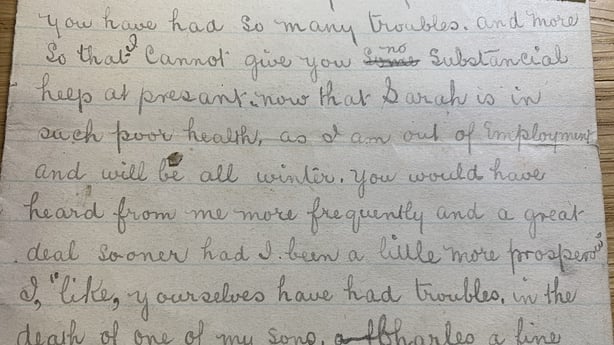 you have had so many troubles. and more
so that I cannot give you some no substancial
heep at presant. now that Sarah is in
such poor health, as I am out of Employment
and will be all winter. you would have
heard from me more frequently and a great
deal sooner had I been a little more prosperous
I, "like, yourselves have had troubles. in the
death of one of my sons. Charles a fine